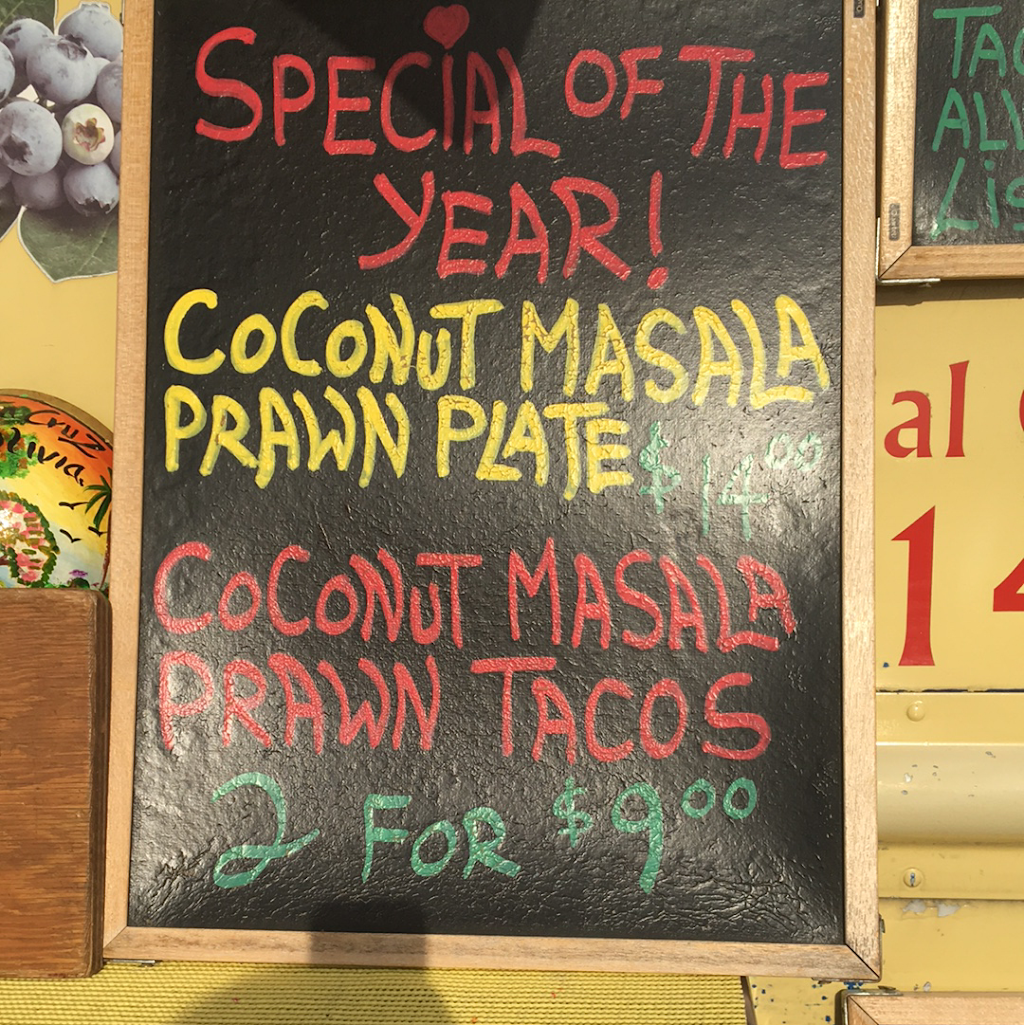 SPECiAL OF THE
YEAR!
COCONUT MASALA
PRAWN PLATE $14.00
COCONUT MASALA
PRAWN TACOS
2 FOR $9.00
al
14
Cruz